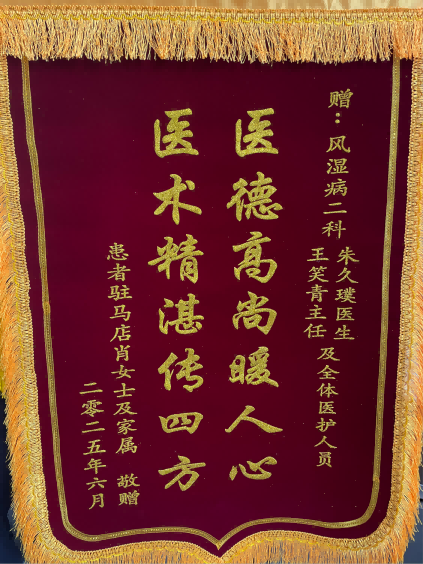 赠：风湿病二科
朱久璞医生
王笑青主任
及全体医护人员
医德高尚暖人心
医术精湛传四方
患者驻马店肖女士及家属 敬赠
二零二五年六月